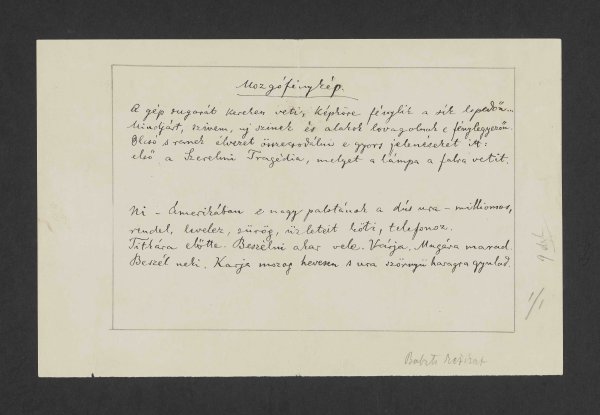 Mozgófénykép.
A gép sugarát kereken veti, képköre fénylik a sík lepedőn...
Mindjárt, szivem, uj szinek és alakok lovagolnak e fénylegyezőn.
Olcsó s remek élvezet összecsodálni e gyors jelenéseket. Itt:
első a Szerelmi Tragédia, melyet a lámpa a falra vetít.
Ni - Amerikában e nagy palotának a dús ura - milliomos,
rendel, levelez, sürög, üzleteit köti, telefonoz.
Titkára előtte. Beszélni akar vele. Várja. Magára marad.
Beszél neki. Karja mozog hevesen s ura szörnyü haragra gyulad.
1/1
Babits